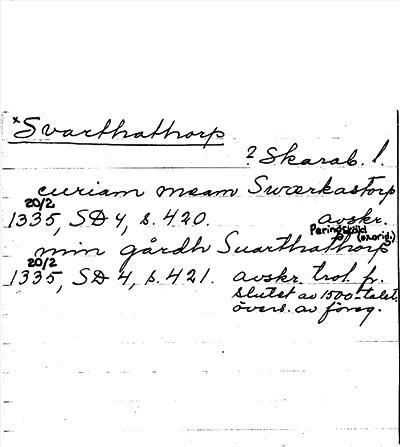 *Svarthathorp
? Skarab. l.
curiam meam Swærkastorp
20/2
1335, SD 4, s. 420. avskr.
Peringskiöld (ex orig.)
min gårdh Suarthathorp
20/2
1335, SD 4, s. 421. avskr. trol. fr.
slutet av 1500-talet,
övers. av föreg.